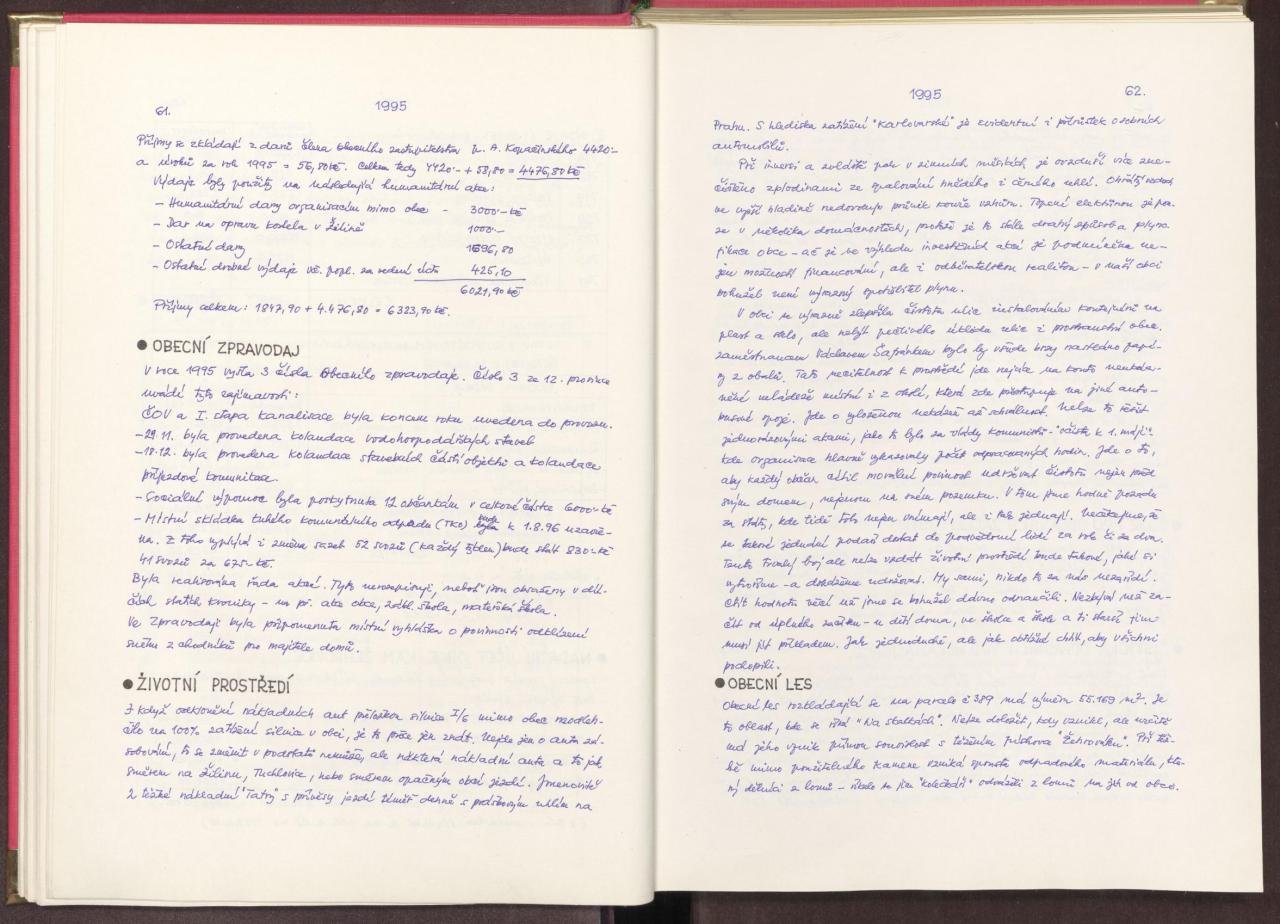 61.
1995
Příjmy se skládají z darů člena obecního zastupitelstva p. A. Kopačinského 4420.-
a úroků za rok 1995 = 56,80 kč. Celkem tedy 4420.- + 58,80 = 4476,80 kč
Výdaje byly použity na následující humanitární akce:
- Humanitární dary organisacím mimo obec - 3000.- kč
- Dar na opravu kostela v Žilině 1000.-
- Ostatní dary 1596,80
- Ostatní drobné výdaje vč. popl. za vedení účtu 425,10
6021,90 kč
Příjmy celkem: 1847,90 + 4.476,80 = 6323,90 kč.
● OBECNÍ ZPRAVODAJ
V roce 1995 vyšla 3 čísla Obecního zpravodaje. Číslo 3 ze 12. prosince
uvádí tyto zajímavosti:
ČOV a I. etapa kanalisace byla koncem roku uvedena do provozu.
- 29.11. byla provedena kolaudace vodohospodářských staveb
- 18.12. byla provedena kolaudace stavebních částí objektů a kolaudace
příjezdové komunikace.
- Sociální výpomoc byla poskytnuta 12 občankám v celkové částce 6000.- kč
- Místní skládka tuhého komunálního odpadu (TKO) bude k 1.8.96 uzavře-
na. Z toho vyplývá i změna sazeb 52 svozů (každý týden) bude stát 830.- kč
41 svozů za 675.- kč.
Byla realisována řada akcí. Tyto nerozepisuji, neboť jsou obsaženy v díl-
čích statích kroniky - na př. akce obce, zákl. škola, mateřská škola.
Ve zpravodaji byla připomenuta místní vyhláška o povinnosti odklízení
sněhu z chodníků pro majitele domů.
● ŽIVOTNÍ PROSTŘEDÍ
I když odklonění nákladních aut přeložkou silnice I/6 mimo obec neodleh-
čilo na 100% zatížení silnice v obci, je to přece jen znát. Nejde jen o auta zá-
sobování, to se změnit v podstatě nemůže, ale některá nákladní auta a to jak
směrem na Žilinu, Tuchlovice, nebo směrem opačným obcí jezdí. Jmenovitě
2 těžké nákladní "Tatry" s přívěsy jezdí téměř denně s práškovým uhlím na
1995
62.
Prahu. S hlediska zatížení "Karlovarské" je evidentní i přírůstek osobních
automobilů.
Při inversi a zvláště pak v zimních měsících, je ovzduší více zne-
čištěno zplodinami ze spalování hnědého i černého uhlí. Ohřátý vzduch
ve vyšší hladině nedovoluje průnik kouře vzhůru. Topení elektřinou je pou-
ze v několika domácnostech, protože je to stále drahý způsob a plyno-
fikace obce - ač je ve výhledu investičních akcí je podmíněna ne-
jen možností financování, ale i odběratelskou realitou - v naší obci
bohužel není výrazný spotřebitel plynu.
V obci se výrazně zlepšila čistota ulic instalováním kontejnerů na
plast a sklo, ale nebýt pečlivého úklidu ulic i prostranství obce.
zaměstnancem Václavem Šafránkem bylo by všude brzy nastláno papí-
ry z obalů. Tato necitelnost k prostředí jde nejvíce na konto neukáz-
něné mládeže místní i z okolí, která zde přestupuje na jiné auto-
busové spoje. Jde o vyloženou nekázeň až schválnost. Nelze to řešit
jednorázovými akcemi, jako to bylo za vlády komunistů - "očista k 1. máji".
kde organisace hlavně vykazovaly počet odpracovaných hodin. Jde o to,
aby každý občan cítil morální povinnost udržovat čistotu nejen před
svým domem, nejenom na svém pozemku. V tom jsme hodně pozadu
za státy, kde lidé toto nejen vnímají, ale i tak jednají. Nečekejme, že
se takové jednání podaří dostat do podvědomí lidí za rok či za dva.
Tento trvalý boj ale nelze vzdát životní prostředí bude takové, jaké si
vytvoříme - a dokážeme udržovat. My sami, nikdo to za nás nezařídí.
Ctít hodnotu věcí už jsme se bohužel dávno odnaučili. Nezbývá než za-
čít od úplného začátku - u dětí doma, ve školce a škole a ti starší jim
musí jít příkladem. Jak jednoduché, ale jak obtížné chtít, aby všichni
pochopili.
● OBECNÍ LES
Obecní les rozkládající se na parcele č 389 má výměru 55.169 m². Je
to oblast, kde se říká "Na skalkách". Nelze doložit, kdy vznikl, ale určitě
má jeho vznik přímou souvislost s těžením pískovce "Žehrováku". Při těž-
bě mimo použitelného kamene vzniká spousta odpadového materiálu, kte-
rý dělníci z lomů - říkalo se jim "kolečkáři" odváželi z lomů na jih od obce.